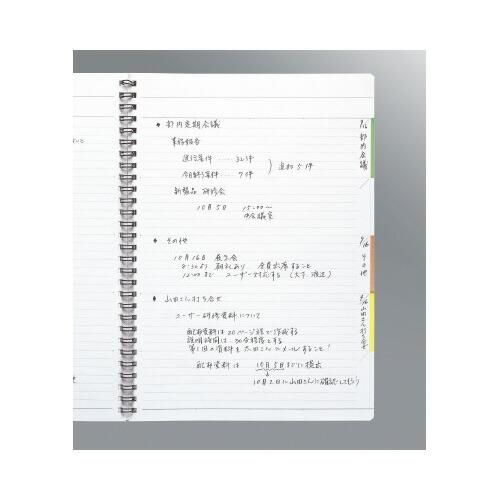 ◆ 部内定期会議
業務報告
進行案件 ‥‥ 32件
今日終了案件 ‥‥ 7件
追加 5件
新製品 研修会
10月5日 15:00〜
中会議室
◆ その他
10月16日 展示会
8:30より 朝礼あり 全員出席すること
12:00まで ユーザー対応する (大下、渡辺)
◆ 山田さん打ち合せ
ユーザー研修資料について
配布資料は 20ページ程で作成する
説明時間は 30分程度とする
第1回の資料を 太田さんにメールすること!
配布資料は 10月5日までに提出
10月2日に山田さんに確認しに行く
9/16 部内会議
9/16 その他
9/16 山田さん打ち合せ